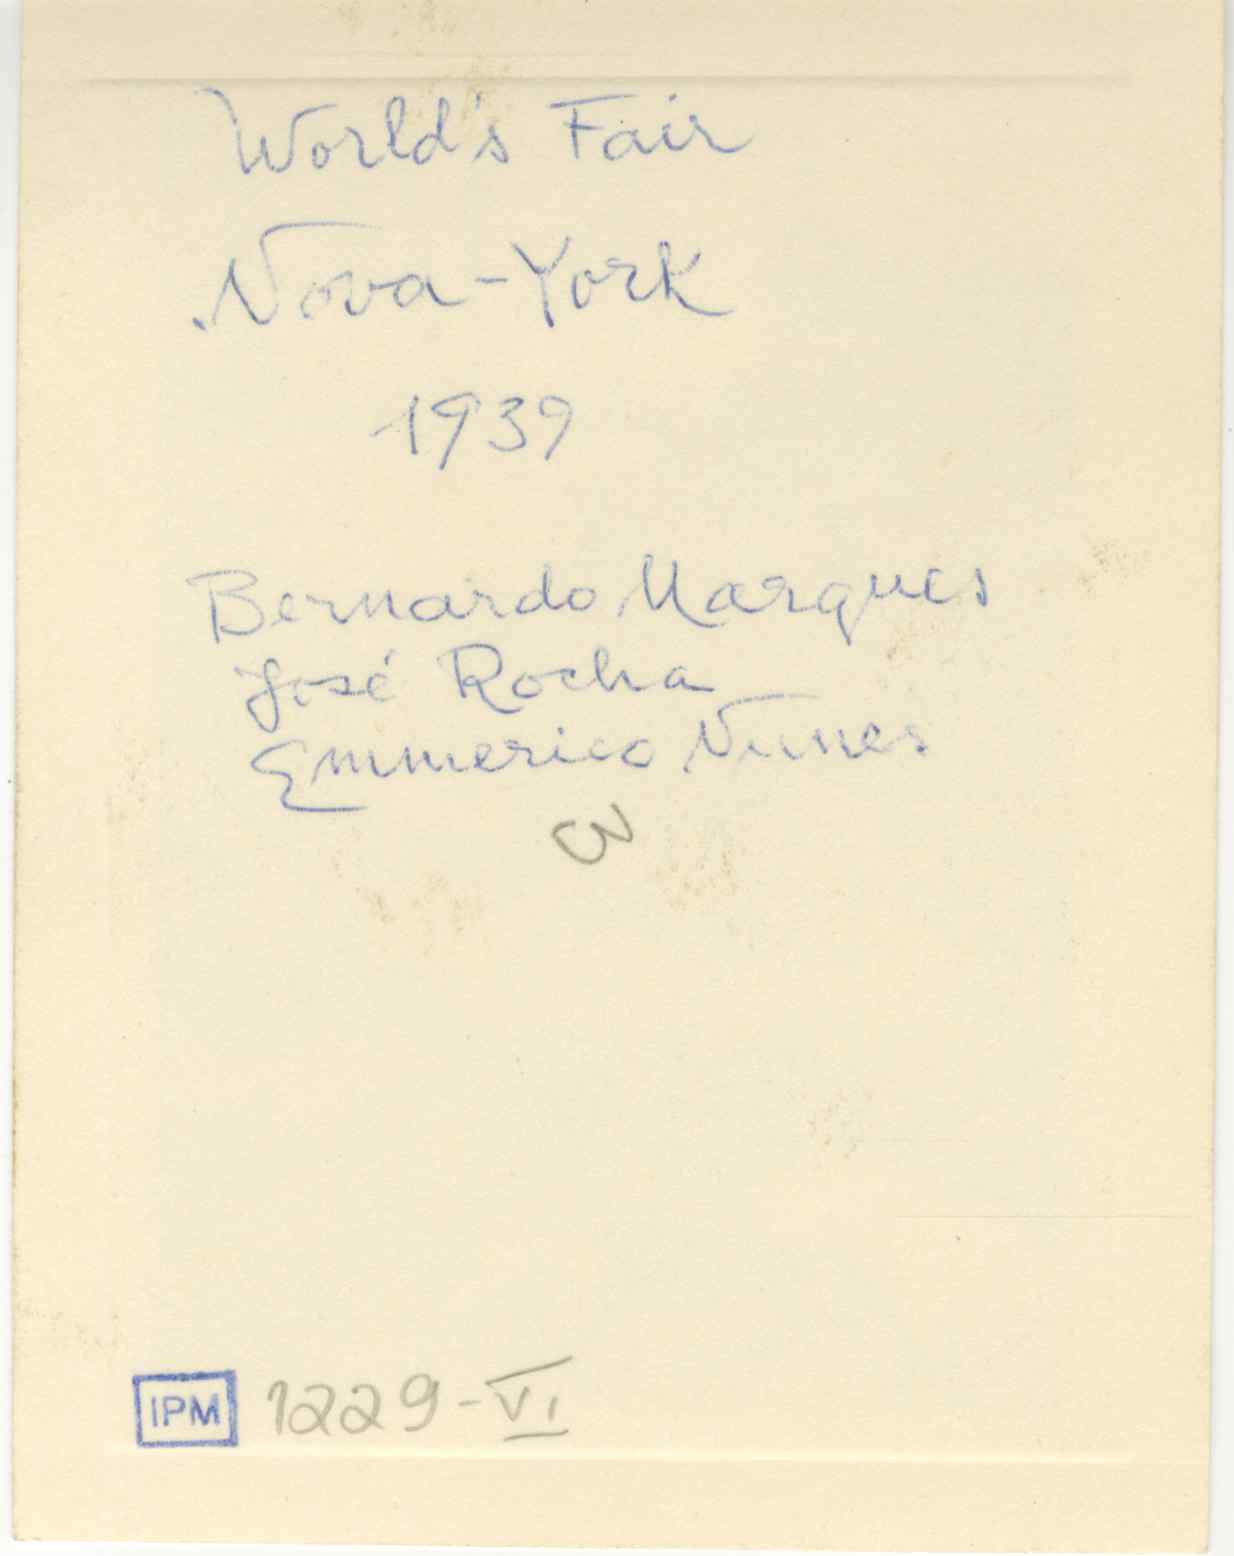 World's Fair
Nova-York
1939
Bernardo Marques
José Rocha
Emmerico Nunes
3
IPM 1229-VI